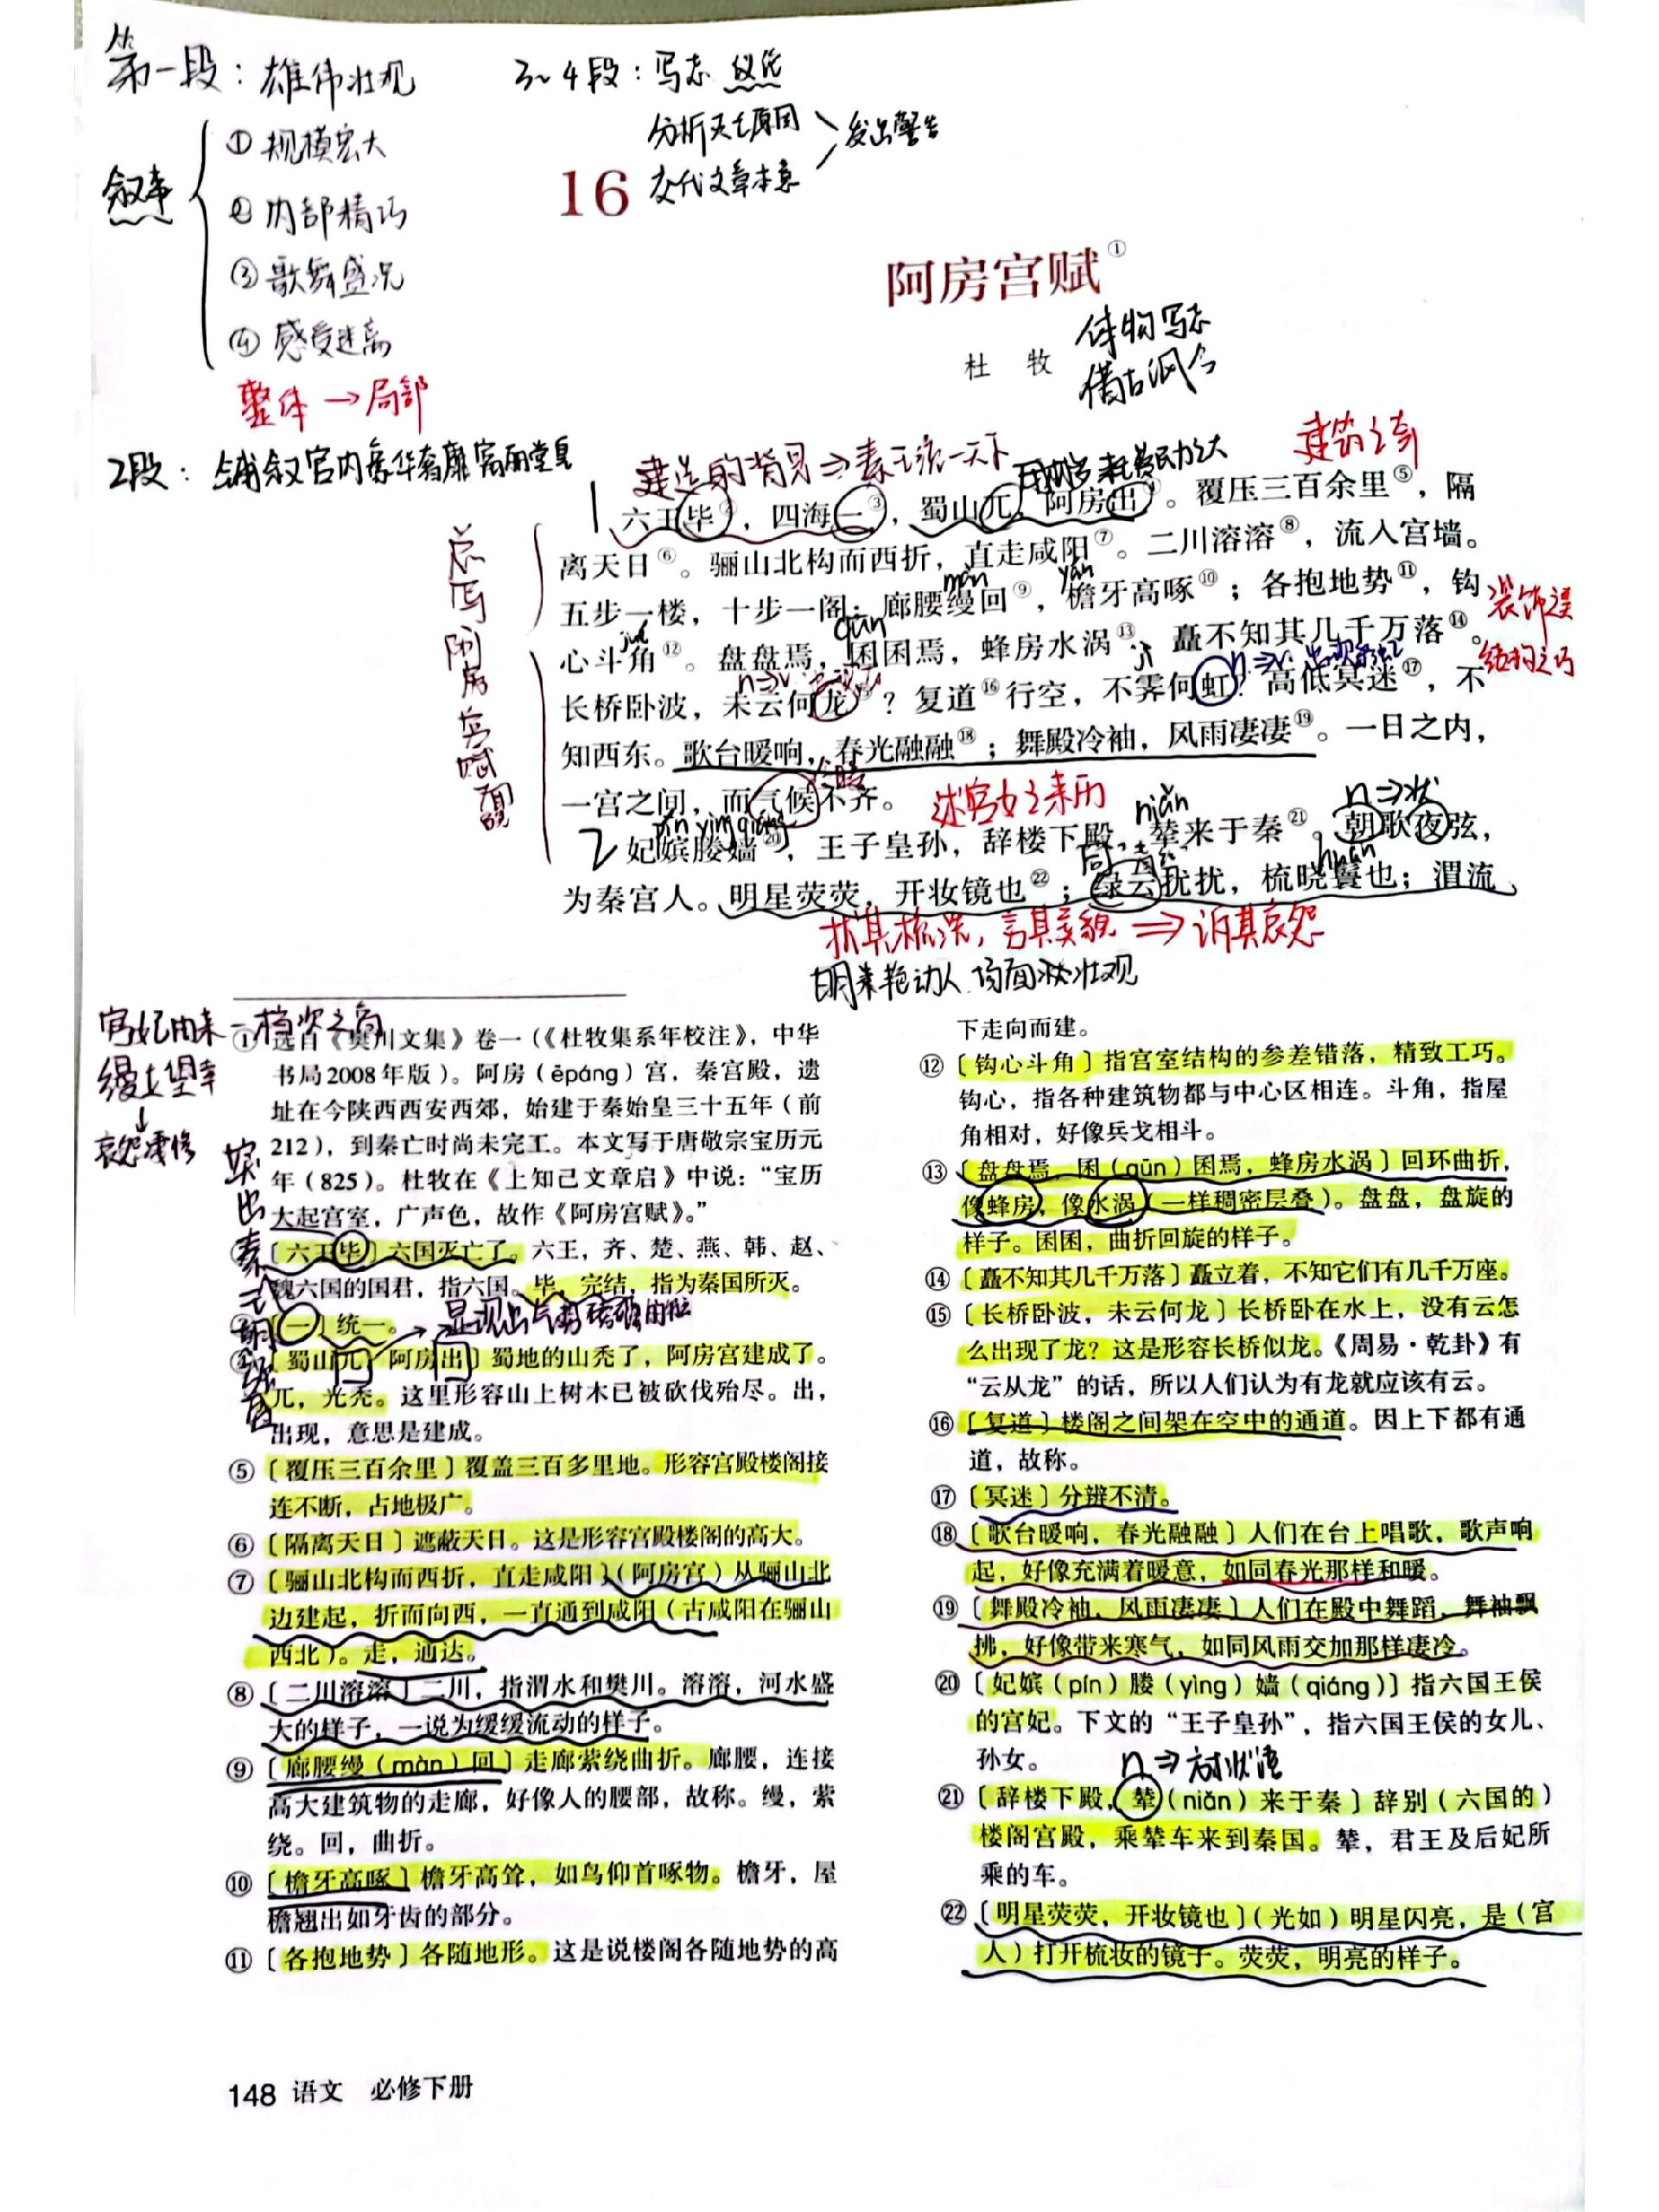 第一段：雄伟壮观
叙事
①规模宏大
②内部精巧
③歌舞盛况
④感受迷离
整体→局部
3~4段：写志 议论
分析灭亡原因
交代文章本意
发出警告
16
阿房宫赋①
杜 牧
体物写志
借古讽今
2段：铺叙宫内豪华奢靡富丽堂皇
建造的背景⇒秦王统一天下
耗费民力之大
建筑之奇
总写阿房宫赋面貌
1
六王毕②，四海一③，蜀山兀，阿房出④。覆压三百余里⑤，隔
离天日⑥。骊山北构而西折，直走咸阳⑦。二川溶溶⑧，流入宫墙。
màn
yán
五步一楼，十步一阁；廊腰缦回⑨，檐牙高啄⑩；各抱地势⑪，钩
装饰之美
结构之巧
jué
qūn
心斗角⑫。盘盘焉，囷囷焉，蜂房水涡⑬，矗不知其几千万落⑭。
n⇒v
jì
n⇒v
长桥卧波，未云何龙⑮？复道⑯行空，不霁何虹？高低冥迷⑰，不
知西东。歌台暖响，春光融融⑱；舞殿冷袖，风雨凄凄⑲。一日之内，
一宫之间，而气候不齐。
述宫女之来历
pín yìng qiáng
niǎn
n⇒状
2
妃嫔媵嫱⑳，王子皇孙，辞楼下殿，辇来于秦㉑。朝歌夜弦，
huán
为秦宫人。明星荧荧，开妆镜也㉒；绿云扰扰，梳晓鬟也；渭流
状其梳洗，言其美貌⇒诉其哀怨
宫妃由来—档次之高
缦立望幸
↓
哀怨凄惨
①选自《樊川文集》卷一（《杜牧集系年校注》，中华
书局2008年版）。阿房（ēpáng）宫，秦宫殿，遗
址在今陕西西安西郊，始建于秦始皇三十五年（前
212），到秦亡时尚未完工。本文写于唐敬宗宝历元
年（825）。杜牧在《上知己文章启》中说：“宝历
大起宫室，广声色，故作《阿房宫赋》。”
②〔六王毕〕六国灭亡了。六王，齐、楚、燕、韩、赵、
魏六国的国君，指六国。毕，完结，指为秦国所灭。
③〔一〕统一。
④〔蜀山兀，阿房出〕蜀地的山秃了，阿房宫建成了。
兀，光秃。这里形容山上树木已被砍伐殆尽。出，
出现，意思是建成。
⑤〔覆压三百余里〕覆盖三百多里地。形容宫殿楼阁接
连不断，占地极广。
⑥〔隔离天日〕遮蔽天日。这是形容宫殿楼阁的高大。
⑦〔骊山北构而西折，直走咸阳〕（阿房宫）从骊山北
边建起，折而向西，一直通到咸阳（古咸阳在骊山
西北）。走，通达。
⑧〔二川溶溶〕二川，指渭水和樊川。溶溶，河水盛
大的样子，一说为缓缓流动的样子。
⑨〔廊腰缦（màn）回〕走廊萦绕曲折。廊腰，连接
高大建筑物的走廊，好像人的腰部，故称。缦，萦
绕。回，曲折。
⑩〔檐牙高啄〕檐牙高耸，如鸟仰首啄物。檐牙，屋
檐翘出如牙齿的部分。
⑪〔各抱地势〕各随地形。这是说楼阁各随地势的高
下走向而建。
⑫〔钩心斗角〕指宫室结构的参差错落，精致工巧。
钩心，指各种建筑物都与中心区相连。斗角，指屋
角相对，好像兵戈相斗。
⑬〔盘盘焉，囷（qūn）囷焉，蜂房水涡〕回环曲折，
像蜂房，像水涡（一样稠密层叠）。盘盘，盘旋的
样子。囷囷，曲折回旋的样子。
⑭〔矗不知其几千万落〕矗立着，不知它们有几千万座。
⑮〔长桥卧波，未云何龙〕长桥卧在水上，没有云怎
么出现了龙？这是形容长桥似龙。《周易·乾卦》有
“云从龙”的话，所以人们认为有龙就应该有云。
⑯〔复道〕楼阁之间架在空中的通道。因上下都有通
道，故称。
⑰〔冥迷〕分辨不清。
⑱〔歌台暖响，春光融融〕人们在台上唱歌，歌声响
起，好像充满着暖意，如同春光那样和暖。
⑲〔舞殿冷袖，风雨凄凄〕人们在殿中舞蹈，舞袖飘
拂，好像带来寒气，如同风雨交加那样凄冷。
⑳〔妃嫔（pín）媵（yìng）嫱（qiáng）〕指六国王侯
的宫妃。下文的“王子皇孙”，指六国王侯的女儿、
孙女。
n⇒ 状语
㉑〔辞楼下殿，辇（niǎn）来于秦〕辞别（六国的）
楼阁宫殿，乘辇车来到秦国。辇，君王及后妃所
乘的车。
㉒〔明星荧荧，开妆镜也〕（光如）明星闪亮，是（宫
人）打开梳妆的镜子。荧荧，明亮的样子。
148 语文 必修下册